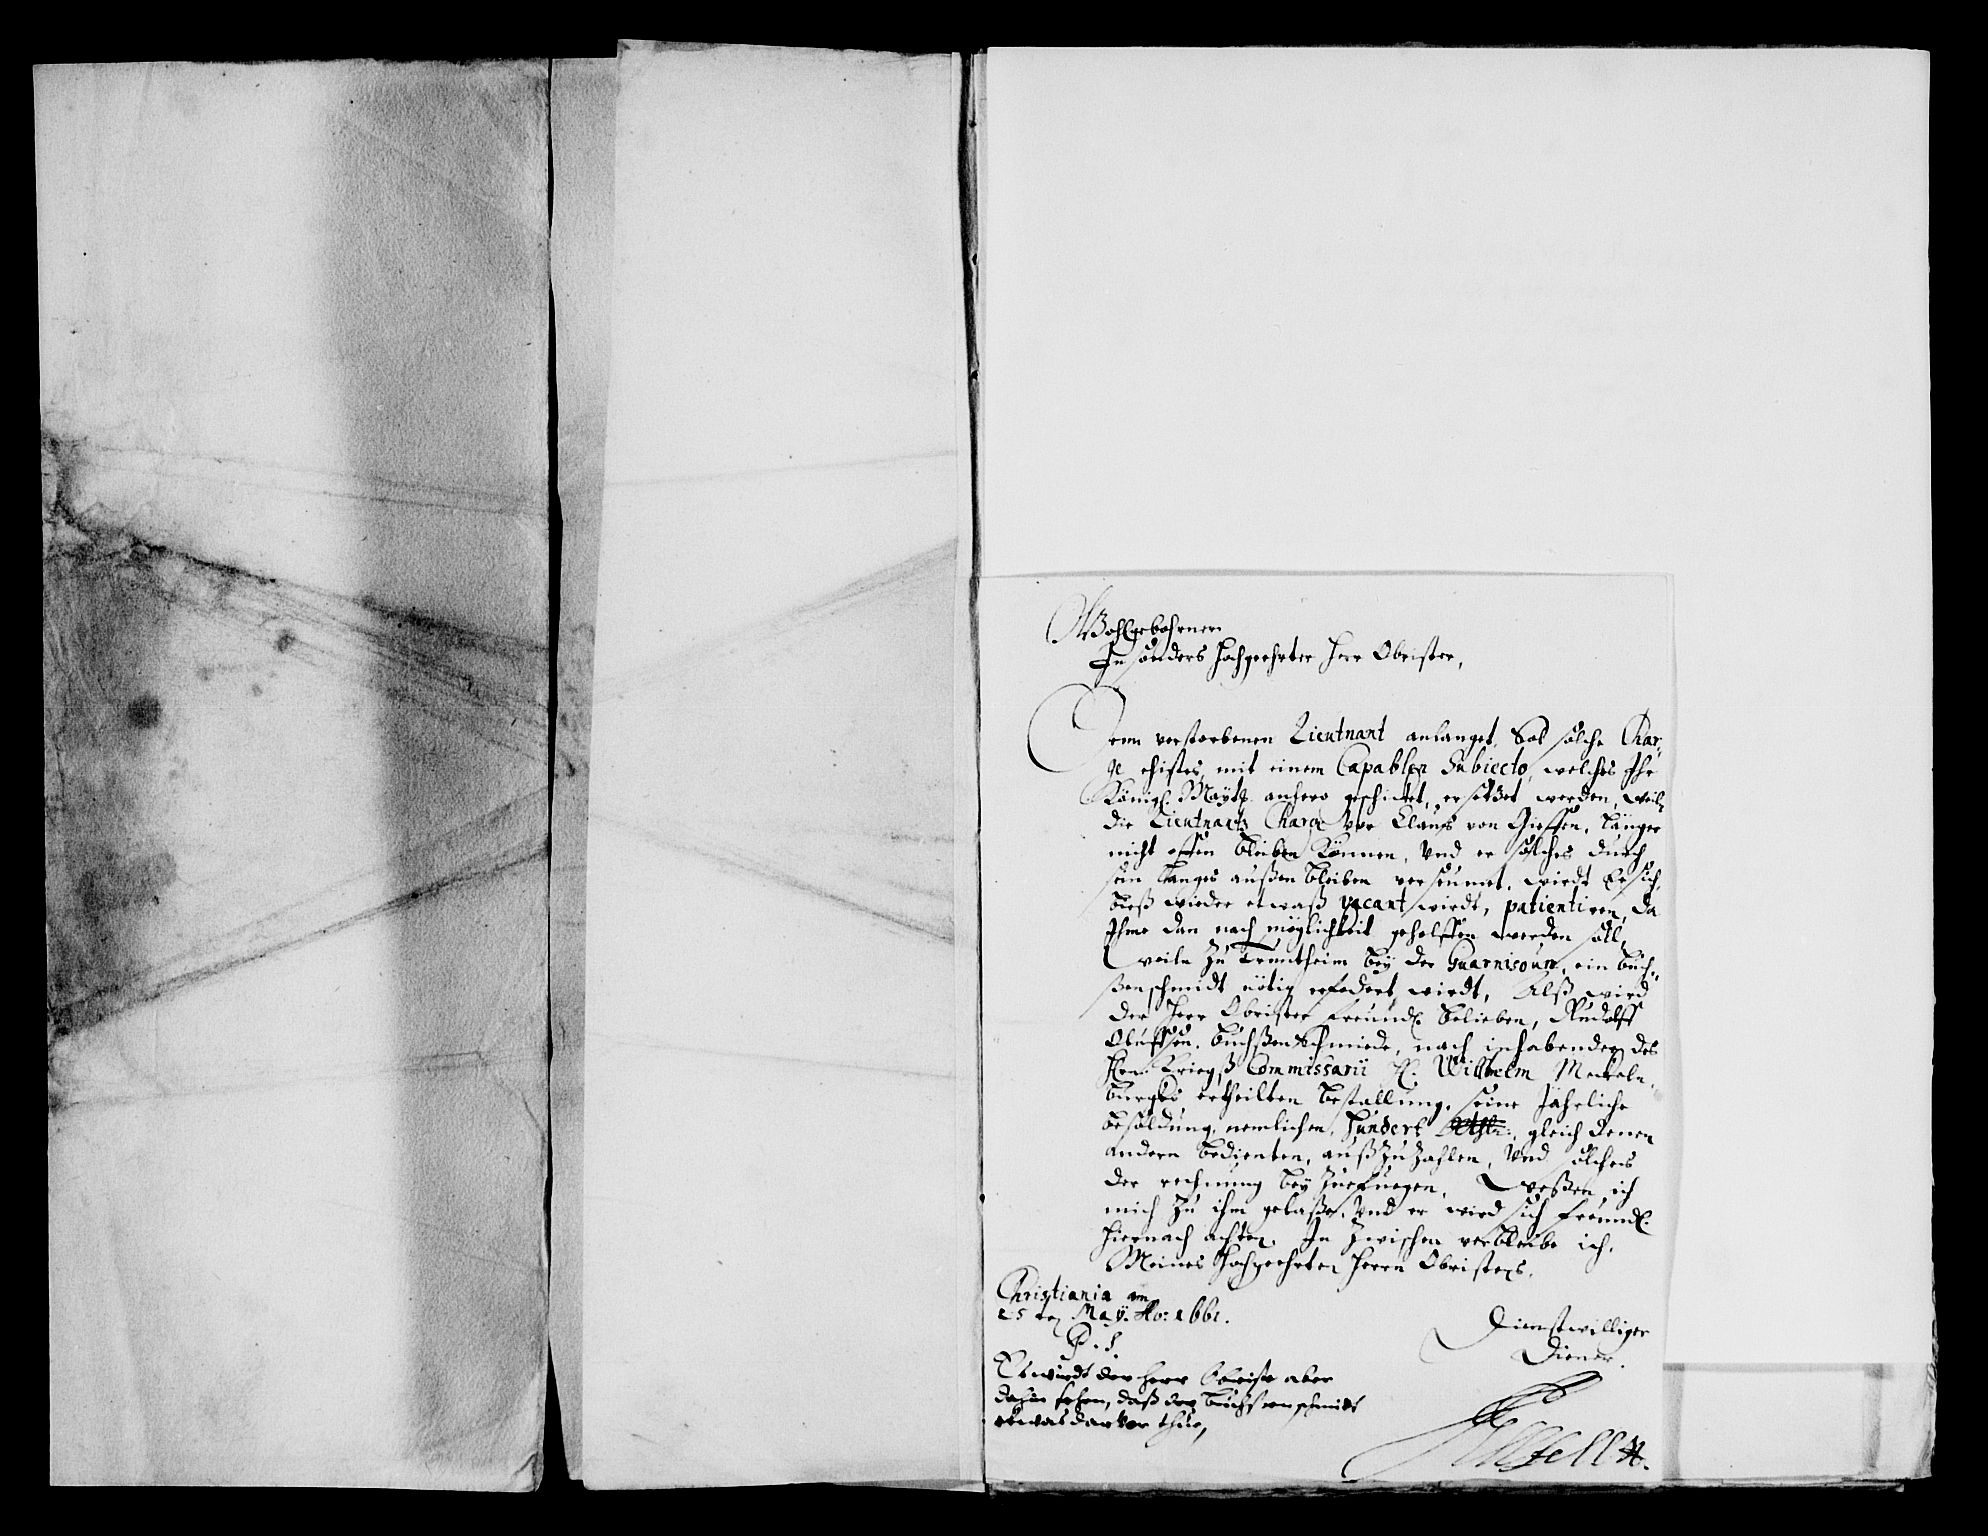 Wohlgebohrner
Insonders hochgeehrter Herr Obrister,
Denn verstorbenen Lieutnant anlanget, Sol solche Char-
ge ehistes, mit einem Capablen Subiecto, welches Ihr
Königl. Maytt. anhero geschicket, ersetzet werden, weil
die Lieutnants Charge vor Claus von Giessen, länger
nicht offen bleiben können, Und er solches durch
sein langes außen bleiben verseumet, wirdt Er sich,
bieß wieder etwaß vacant wirdt, patientiren, da
Ihme dan nach möglichkeit geholffen werden soll,
Weiln Zu Truntheim bey der Guarnisoun, ein büch-
ßenschmidt nötig erfodert wirdt, Alß wird
der Herr Obrister freundl. belieben, Rudolff
Oluffsen, büchßenschmiede, nach inhabender des
Hrn. Kriegß Commissarii H. Wilhelm Meckeln-
burgks ertheilten bestallung, seine Jährliche
besoldung, nemlichen, hundert gleich denen
andern bedienten, außzuzahlen, Und solches
der rechnung bey Zuefuegen, weßen ich
mich Zu ihm gelaße, Und er wird sich freundl.
hiernach achten. In Zwischen verbleibe ich,
Meines Hochgeehrten Herrn Obristens,
Christiania am
25 ten May. Ao: 1661.
Dienstwilliger
Diener.
P. S.
Es wirdt der Herr Obriste aber
dahin sehen, daß der büchssenschmidt
etwas darvor thue,